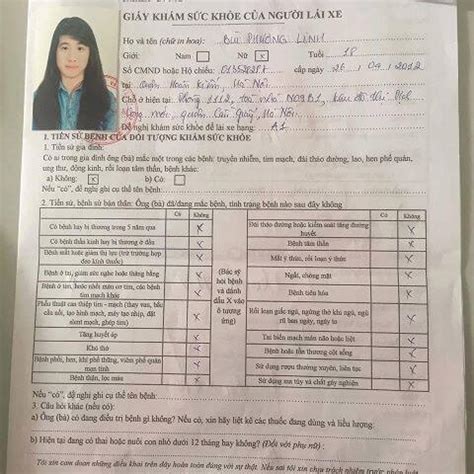 GIẤY KHÁM SỨC KHỎE CỦA NGƯỜI LÁI XE
Họ và tên (chữ in hoa): BÙI PHƯƠNG LINH
Giới: Nam Nữ x Tuổi 18
Số CMND hoặc Hộ chiếu: cấp ngày 26 / 04 / 2012
tại Hoàn Kiếm, Hà Nội
Chỗ ở hiện tại: Phòng 1112, toà nhà N09B1, khu đô thị Dịch
Vọng mới, quận Cầu Giấy, Hà Nội.
Đề nghị khám sức khỏe để lái xe hạng: A1
I. TIỀN SỬ BỆNH CỦA ĐỐI TƯỢNG KHÁM SỨC KHỎE
1. Tiền sử gia đình:
Có ai trong gia đình ông (bà) mắc một trong các bệnh: truyền nhiễm, tim mạch, đái tháo đường, lao, hen phế quản,
ung thư, động kinh, rối loạn tâm thần, bệnh khác:
a) Không: x b) Có:
Nếu "có", đề nghị ghi cụ thể tên bệnh:
2. Tiền sử, bệnh sử bản thân: Ông (bà) đã/đang mắc bệnh, tình trạng bệnh nào sau đây không
Có Không
Có bệnh hay bị thương trong 5 năm qua x
Có bệnh thần kinh hay bị thương ở đầu x
Bệnh mắt hoặc giảm thị lực (trừ trường hợp đeo kính thuốc) x
Bệnh ở tai, giảm sức nghe hoặc thăng bằng x
Bệnh ở tim, hoặc nhồi máu cơ tim, các bệnh tim mạch khác x
Phẫu thuật can thiệp tim - mạch (thay van, bắc cầu nối, tạo hình mạch, máy tạo nhịp, đặt slent mạch, ghép tim) x
Tăng huyết áp x
Khó thở x
Bệnh phổi, hen, khí phế thũng, viêm phế quản mạn tính x
Bệnh thận, lọc máu x
(Bác sỹ hỏi bệnh và đánh dấu X vào ô tương ứng)
Có Không
Đái tháo đường hoặc kiểm soát tăng đường huyết x
Bệnh tâm thần x
Mất ý thức, rối loạn ý thức x
Ngất, chóng mặt x
Bệnh tiêu hóa x
Rối loạn giấc ngủ, ngừng thở khi ngủ, ngủ rũ ban ngày, ngáy to x
Tai biến mạch máu não hoặc liệt x
Bệnh hoặc tổn thương cột sống x
Sử dụng rượu thường xuyên, liên tục x
Sử dụng ma túy và chất gây nghiện x
Nếu "có", đề nghị ghi cụ thể tên bệnh:
3. Câu hỏi khác (nếu có):
a) Ông (bà) có đang điều trị bệnh gì không? Nếu có, xin hãy liệt kê các thuốc đang dùng và liều lượng:
b) Hiện tại đang có thai hoặc nuôi con nhỏ dưới 12 tháng hay không? (Đối với phụ nữ):
Tôi xin cam đoan những điều khai trên đây hoàn toàn đúng với sự thật. Nếu sai tôi xin chịu trách nhiệm trước pháp luật